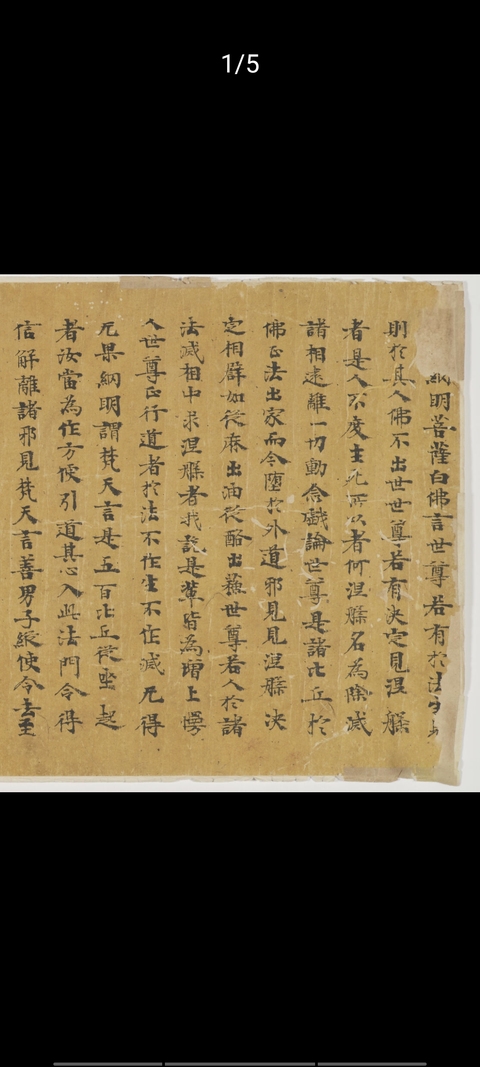 1/5
網明菩薩白佛言世尊若有於法
則於其人佛不出世世尊若有決定見涅槃
者是人不度生死所以者何涅槃名為除滅
諸相遠離一切動念戲論世尊是諸比丘於
佛正法出家而今墮於外道邪見見涅槃決
定相譬如從麻出油從酪出蘇世尊若人於諸
法滅相中求涅槃者我說是輩皆為增上慢
人世尊正行道者於法不作生不作滅无得
无果網明謂梵天言是五百比丘從坐起
者汝當為作方便引道其心入此法門令得
信解離諸邪見梵天言善男子縱使令去至